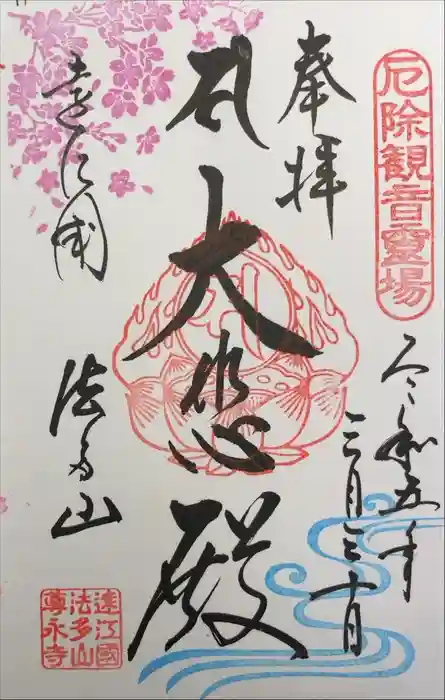 厄除観音霊場
奉拝
令和五年
三月三十日
大悲殿
遠江國
法多山
遠江國
法多山
尊永寺